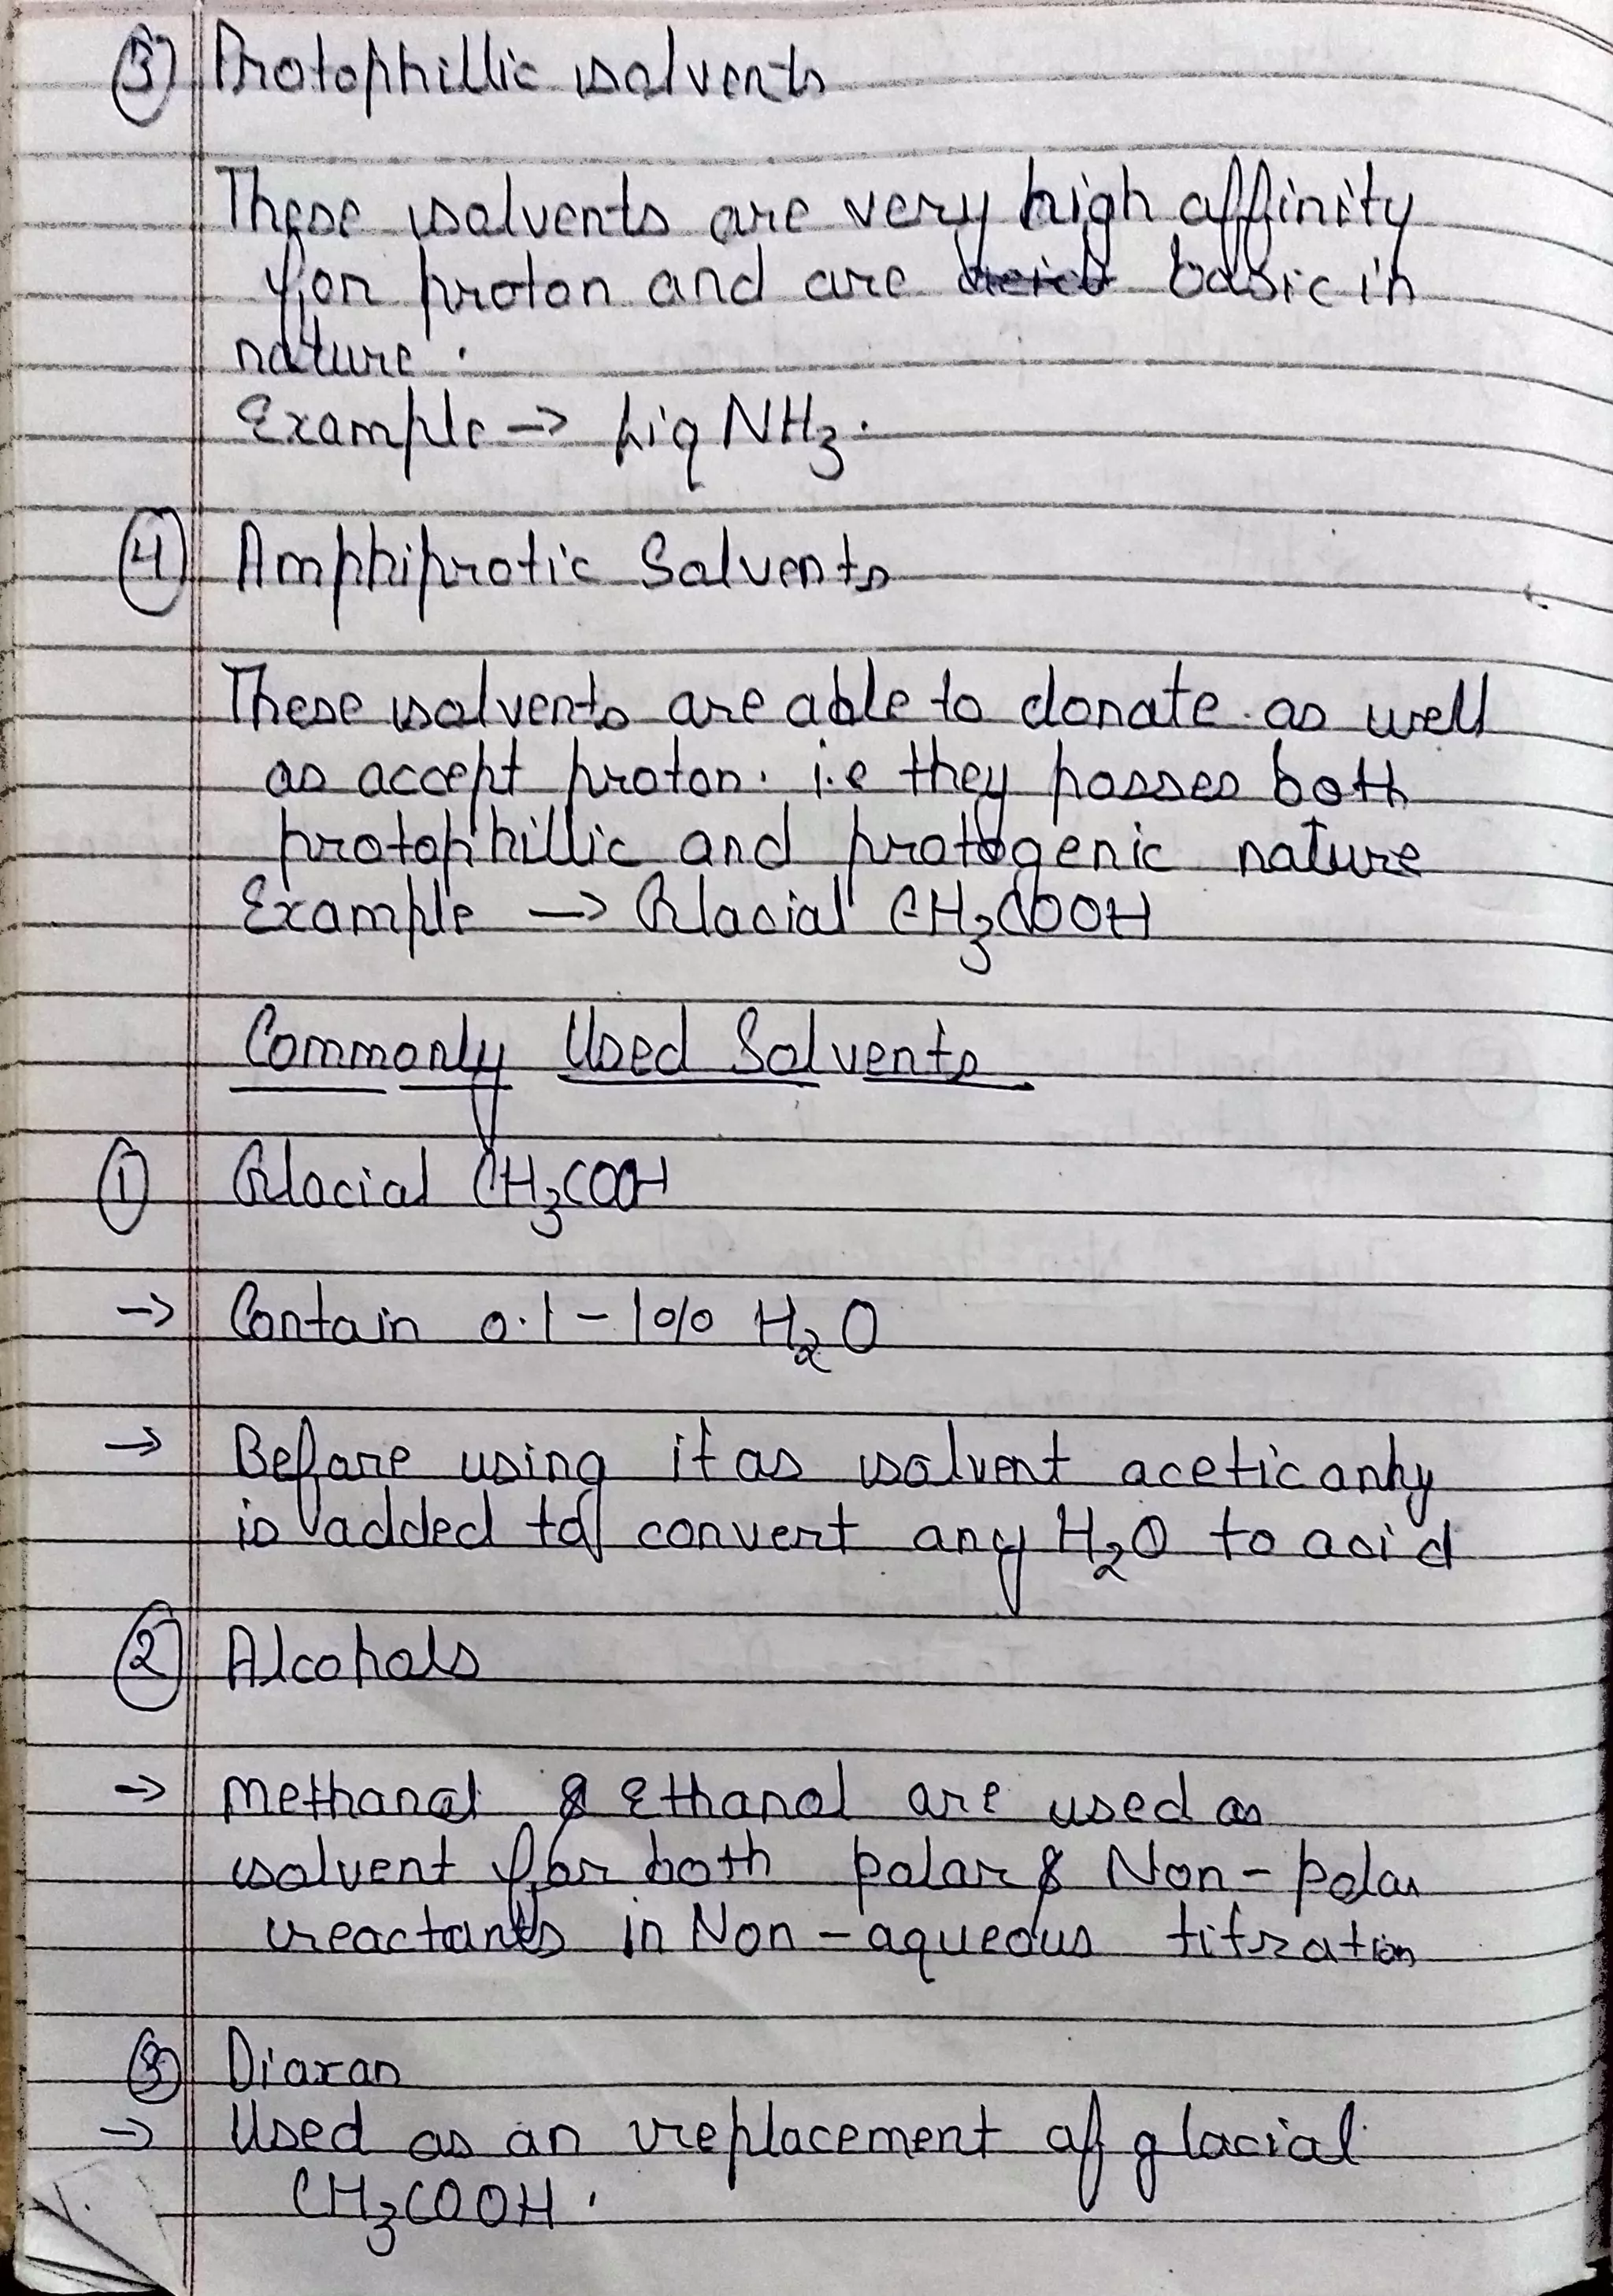 ③ Protophillic solvents
These solvents are very high affinity
for proton and are basic in
nature.
Example → Liq NH₃.
④ Amphiprotic Solvents
These solvents are able to donate as well
as accept proton. i.e they posses both
protophillic and protogenic nature
Example → Glacial CH₃COOH
Commonly Used Solvents
① Glacial CH₃COOH
→ Contain 0.1 - 1% H₂O
→ Before using it as solvent acetic anhy
is added to convert any H₂O to acid
② Alcohols
→ Methanol & Ethanol are used as
solvent for both polar & Non-polar
reactants in Non-aqueous titration
③ Dioxan
→ Used as an replacement of glacial
CH₃COOH.